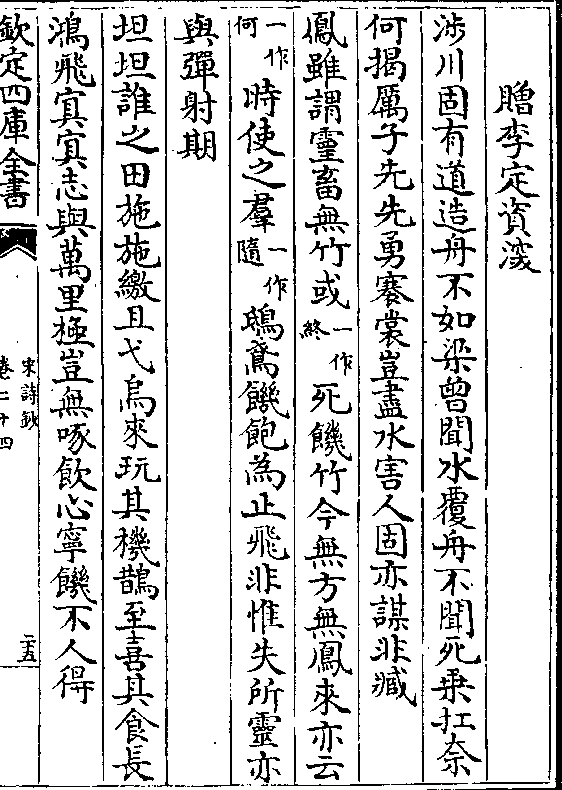 贈李定資深
涉川固有道造舟不如梁曾聞水覆舟不聞死乗扛奈
何揭厲子先先勇褰裳豈盡水害人固亦謀非臧
鳳雖謂靈畜無竹或一作終死饑竹今無方無鳳來亦云
一作何時使之羣一作隨鴟鳶饑飽為止飛非惟失所靈亦
與彈射期
坦坦誰之田施施繳且弋烏來玩其機鵲至喜其食長
鴻飛㝠㝠志與萬里極豈無啄飲心寧饑不人得
欽定四庫全書
宋詩鈔
卷二十四
二五